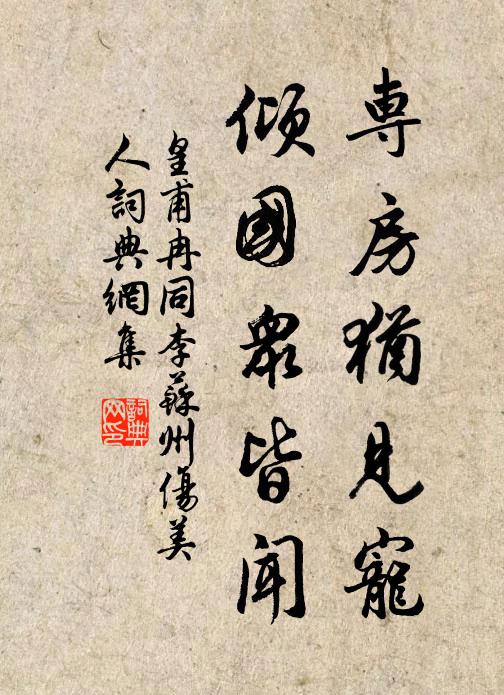 專房猶見寵
傾國眾皆聞
皇甫冉同李蘇州傷美
人詞典網集
詞典
网印